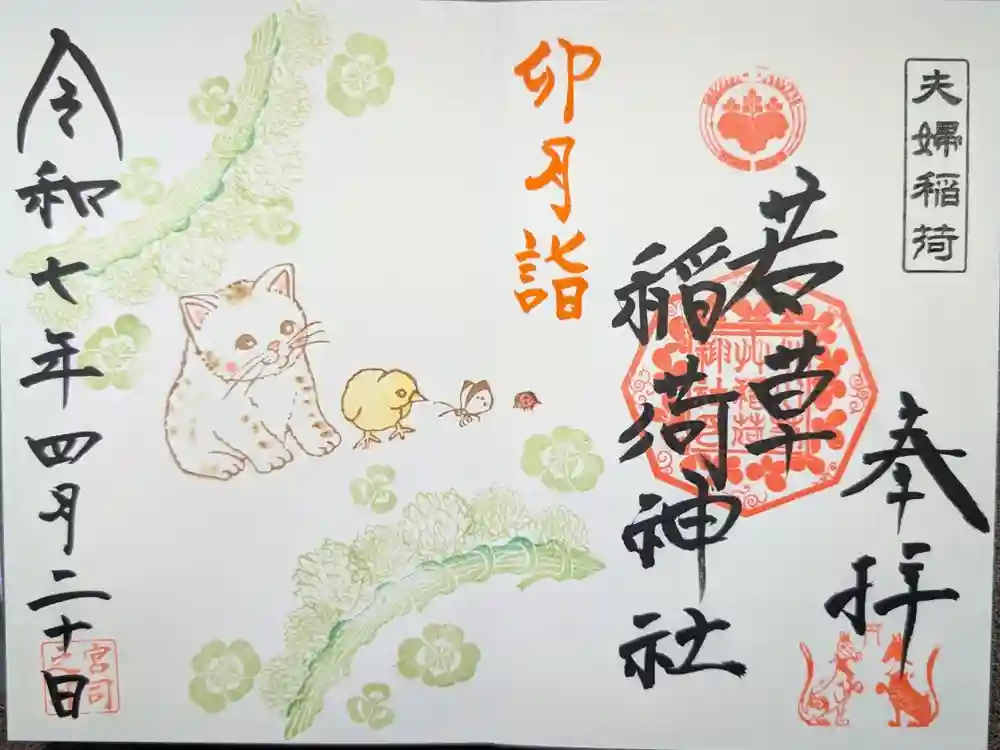 夫婦稲荷
奉拝
若草
稲荷神社
卯月詣
令和七年四月二十日
宮司
之印